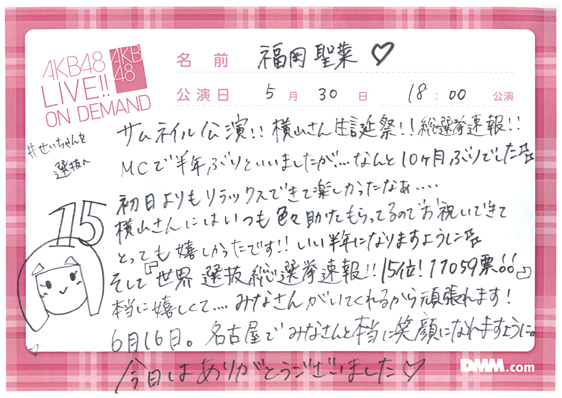 AKB48
LIVE!!
ON DEMAND
AKB
48
名前 福岡聖菜♡
公演日 5月 30日 18:00 公演
#せいちゃんを
選抜へ
サムネイル公演!! 横山さん生誕祭!! 総選挙速報!!
MCで半年ぶりといいましたが…なんと10ヶ月ぶりでした
初日よりもリラックスできて楽しかったなぁ….
横山さんにはいつも色々助けてもらってるのでお祝いできて
とっても嬉しかったです!! いい半年になりますように
そして『世界選抜総選挙速報!! 15位! 11059票!!』
本当に嬉しくて…. みなさんがいてくれるから頑張れます!
6月16日。名古屋でみなさんと本当に笑顔になれますように。
今日はありがとうございました♡
75
DMM.com